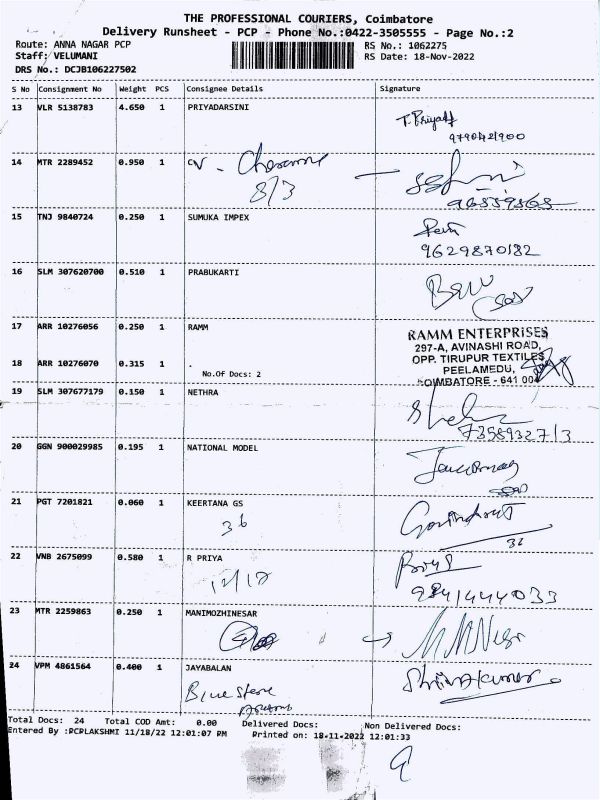 THE PROFESSIONAL COURIERS, Coimbatore
Delivery Runsheet - PCP - Phone No.:0422-3505555 - Page No.:2
Route: ANNA NAGAR PCP RS No.: 1062275
Staff: VELUMANI RS Date: 18-Nov-2022
DRS No.: DCJB106227502
S No Consignment No Weight PCS Consignee Details Signature
13 VLR 5138783 4.650 1 PRIYADARSINI
T. Priya
14 MTR 2289452 0.950 1 CV -
8/3
15 TNJ 9840724 0.250 1 SUMUKA IMPEX
9629870182
16 SLM 307620700 0.510 1 PRABUKARTI
17 ARR 10276056 0.250 1 RAMM
RAMM ENTERPRISES
297-A, AVINASHI ROAD,
OPP. TIRUPUR TEXTILES
PEELAMEDU,
COIMBATORE - 641 004
18 ARR 10276070 0.315 1 .
No.Of Docs: 2
19 SLM 307677179 0.150 1 NETHRA
7358932713
20 GGN 900029985 0.195 1 NATIONAL MODEL
21 PGT 7201821 0.060 1 KEERTANA GS
36
36
22 VNB 2675099 0.580 1 R PRIYA
12/12
9841444033
23 MTR 2259863 0.250 1 MANIMOZHINESAR
24 VPM 4861564 0.400 1 JAYABALAN
Blue stone
Shivakumar
Total Docs: 24 Total COD Amt: 0.00 Delivered Docs: Non Delivered Docs:
Entered By :PCPLAKSHMI 11/18/22 12:01:07 PM Printed on: 18-11-2022 12:01:33